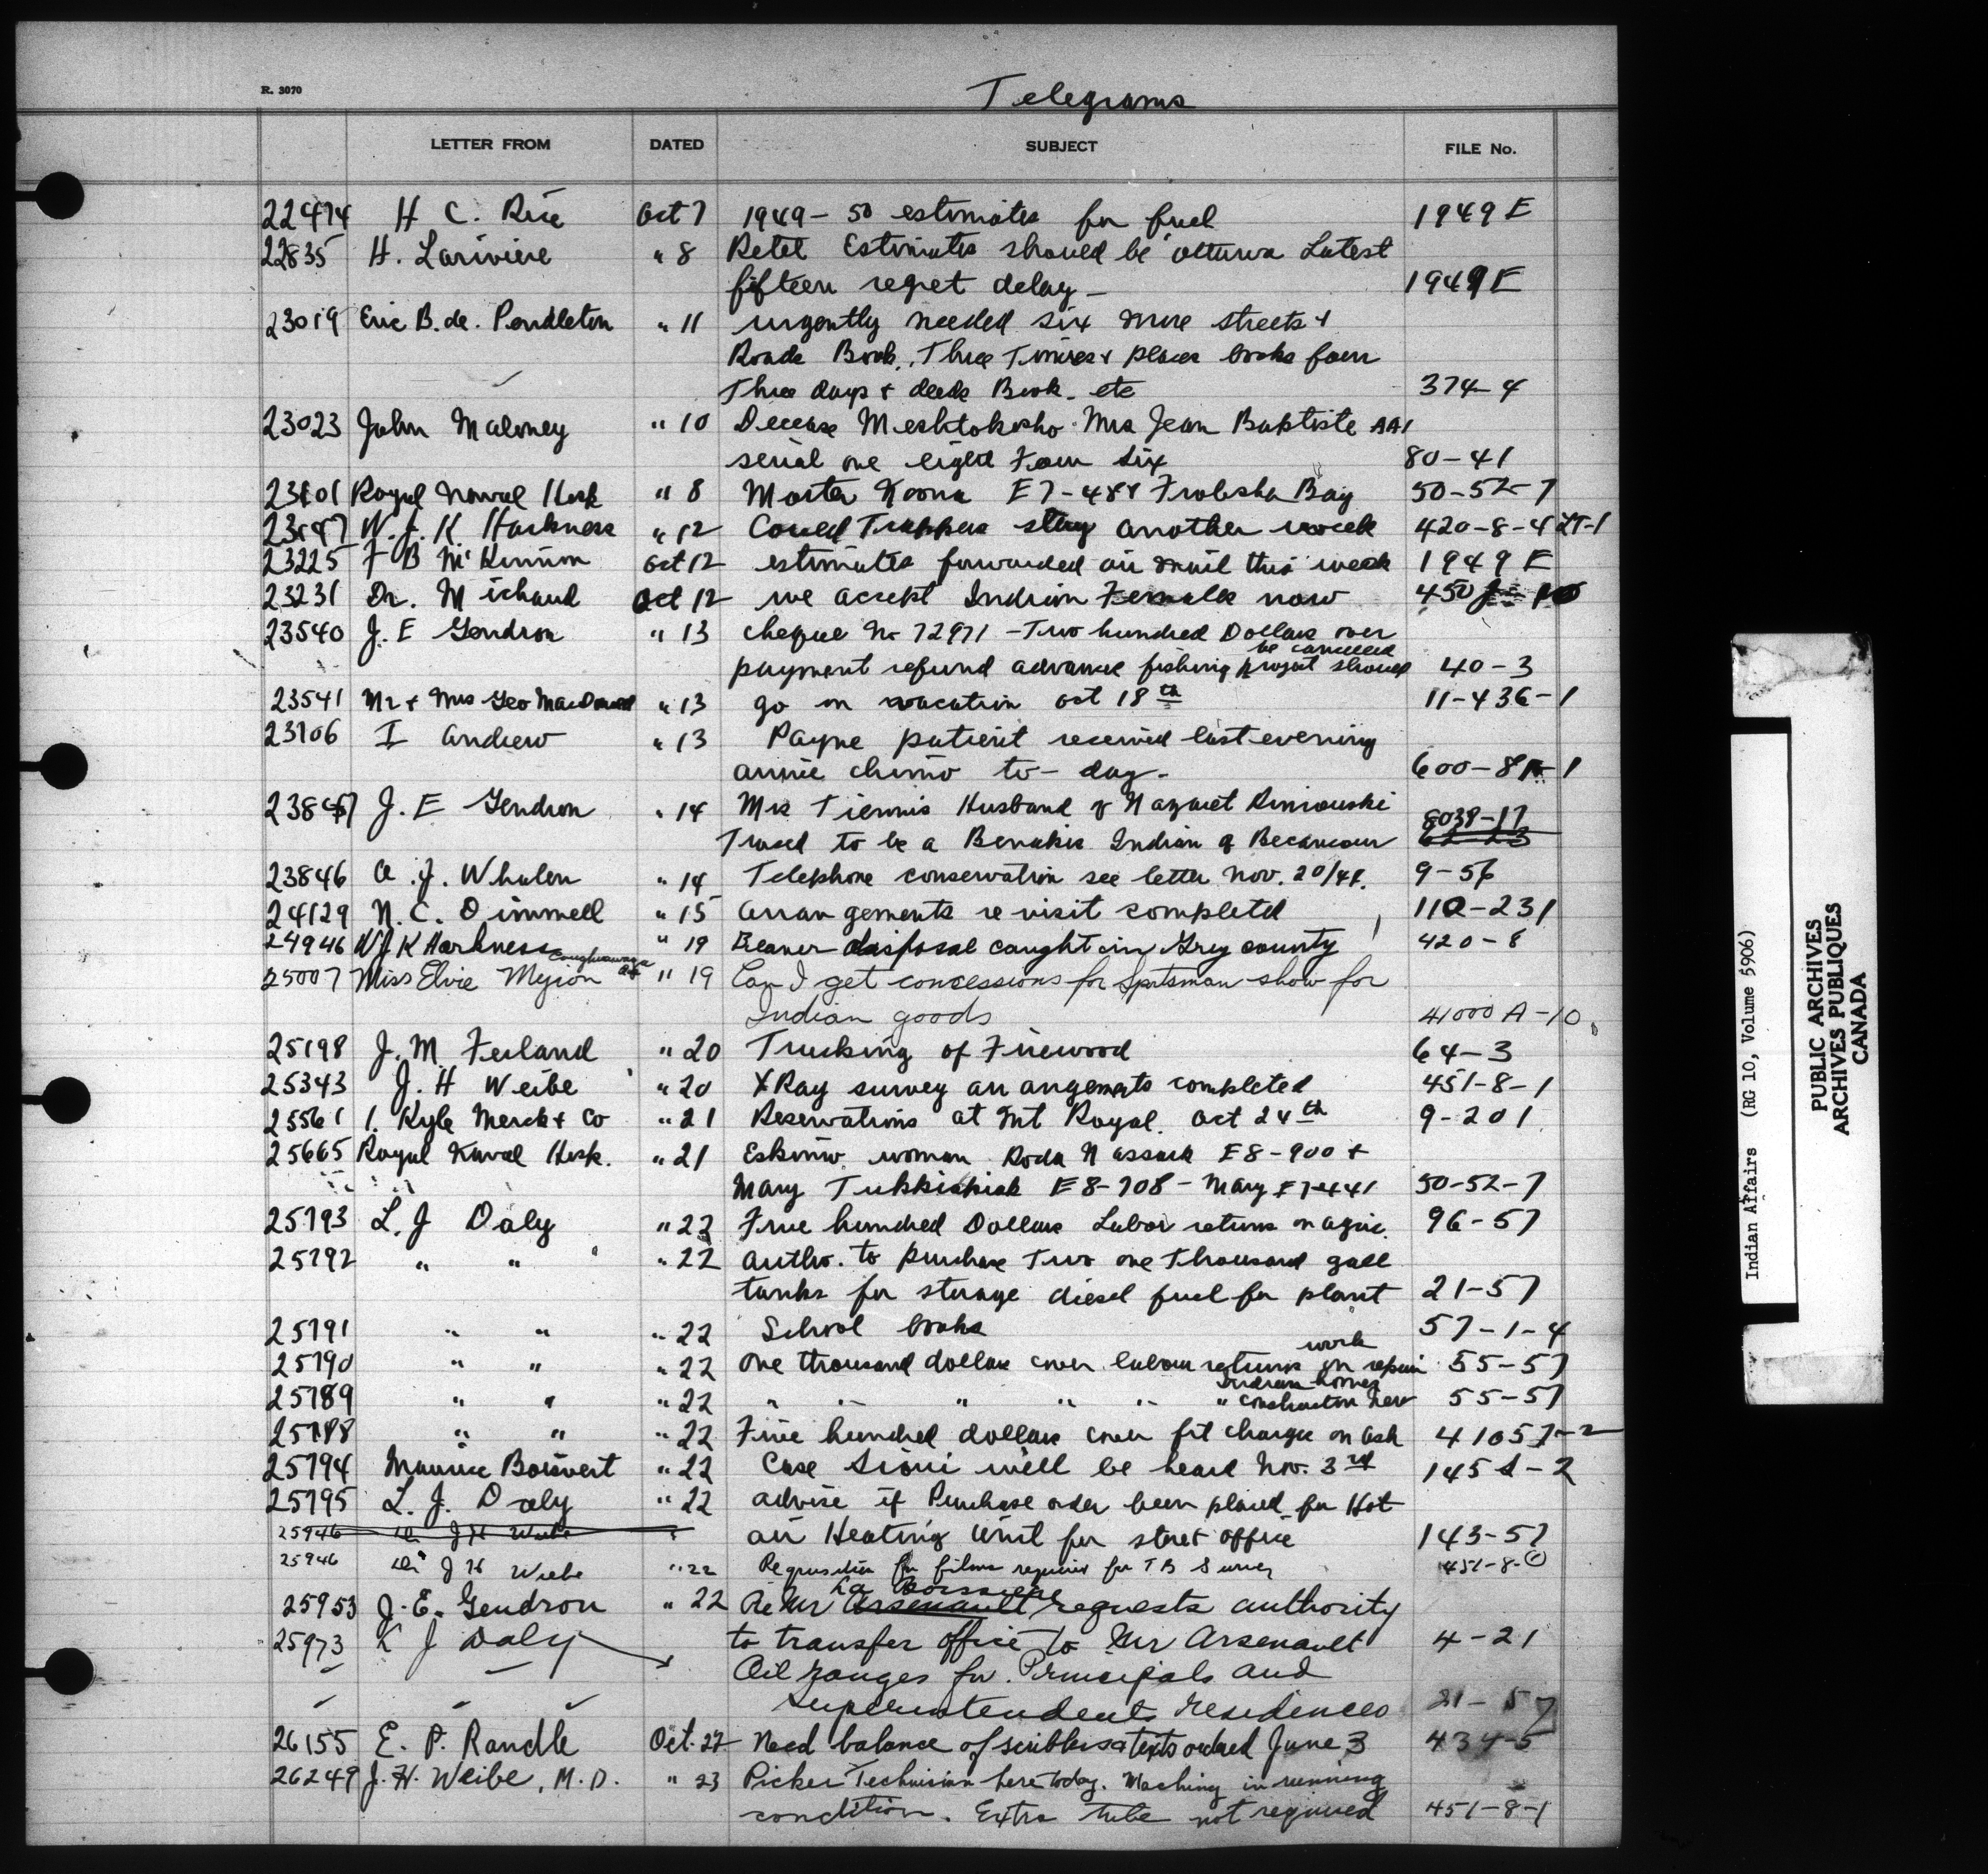 R. 3070
Telegrams
LETTER FROM DATED SUBJECT FILE No.
22474 H C. Rice Oct 7 1949 - 50 estimates for fuel 1949 E
22835 H. Lariviere " 8 Retel Estimates should be ottawa Latest
fifteen regret delay - 1949 E
23019 Eric B. de. Pendleton " 11 urgently needed six more streets &
Roads Book, Three Times & places books four
Three days & deeds Book - etc 374-4
23023 John Maloney " 10 Decease Meshtokosho Mrs Jean Baptiste AA1
serial one eight Four Six 80-41
23101 Royal Naval Hosp " 8 E7-488 Frobisher Bay 50-52-7
W. J. K. Harkness " 12 Could Trapper stay another week 420-8-4 LT-1
23225 F B McKinnon Oct 12 estimates forwarded air mail this week 1949 E
23231 Dr. Michaud Oct 12 we accept Indian Female now 450
23540 J. E Gendron " 13 cheque No 72971 - Two hundred Dollars over
be cancelled
payment refund advance fishing project should 40-3
23541 Mr & Mrs Geo MacDonald " 13 go on vacation oct 18th 11-436-1
23706 I Andrew " 13 Payne patient received last evening
annie chimo to-day - 600-8 -1
J. E Gendron " 14 Mrs Husband of
8039-17
to be a Benakis Indian of Becancour 62-23
23846 A. J. Whalen " 14 Telephone conservation see letter Nov. 20/48. 9-56
24129 N. C. Dimmell " 15 arrangements re visit completed 112-231
24946 WJK Harkness " 19 Beaver disposal caught in Grey county 420-8
Caughnawaga
25007 Miss Elvie Myion " 19 Can I get concessions for Sportsman show for
Indian goods 41000 A-10
25198 J. M. Ferland " 20 Trucking of Firewood 64-3
25343 J. H Weibe " 20 X Ray survey arrangements completed 451-8-1
25561 I. Kyle Merck & Co " 21 Reservations at Mt Royal. Oct 24th 9-201
25665 Royal Naval Hosp. " 21 Eskimo woman Roda Nassack E8-900 &
Mary E8-708 - Mary E7-441 50-52-7
25793 L. J Daly " 22 Five hundred Dollars Labor returns on agric. 96-57
25792 " " " 22 autho. to purchase Two one Thousand gall
tanks for storage diesel fuel for plant 21-57
25791 " " " 22 School books 57-1-4
work
25790 " " " 22 one thousand dollars cover labour returns on repair 55-57
Indian homes
25789 " " " 22 " " " " " " construction new 55-57
25788 " " " 22 Five hundred dollars cover frt charges on ash 41057-2
25794 Maurice Boisvert " 22 Case Sioui will be heard Nov. 3rd 145 -2
25795 L. J. Daly " 22 advise if Purchase order been placed for Hot
25946 Dr J H Wiebe air Heating Unit for store & office 143-57
25946 Dr J H Wiebe " 22 Requisition for films required for TB Survey 451-8-
La Boissiere
25953 J. E. Gendron " 22 Re Mr Arsenault requests authority
25973 L J Daly to transfer office to Mr Arsenault 4-21
Oil ranges for Principals and
Superintendents residences 21-57
26155 E. P. Randle Oct. 22 Need balance of scribblers & texts ordered June 3 434-5
26249 J. H. Weibe, M.D. " 23 Picker Technician here today. Maching in running
condition. Extra tube not required 451-8-1
Indian Affairs (RG 10, Volume 5906)
PUBLIC ARCHIVES
ARCHIVES PUBLIQUES
CANADA